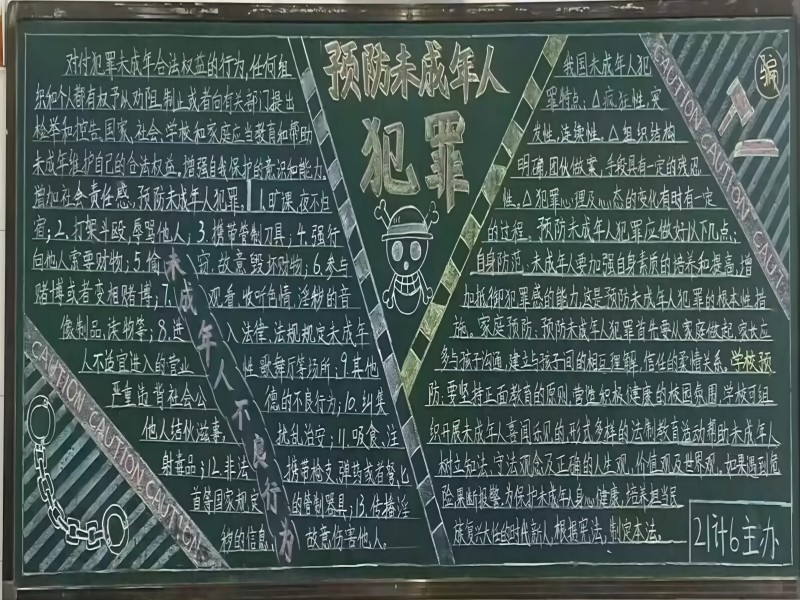 预防未成年人
犯罪
对付犯罪未成年合法权益的行为,任何组
织和个人都有权予以劝阻,制止或者向有关部门提出
检举和控告,国家、社会、学校和家庭应当教育和帮助
未成年维护自己的合法权益,增强自我保护的意识和能力,
增加社会责任感,预防未成年人犯罪。1.旷课、夜不归
宿;2.打架斗殴,辱骂他人;3.携带管制刀具;4.强行
向他人索要财物;5.偷窃、故意毁坏财物;6.参与
赌博或者变相赌博;7.观看、收听色情、淫秽的音
像制品、读物等;8.进入法律、法规规定未成年
人不适宜进入的营业性歌舞厅等场所;9.其他
严重违背社会公德的不良行为;10.纠集
他人结伙滋事,扰乱治安;11.吸食、注
射毒品;12.非法携带枪支,弹药或者匕
首等国家规定的管制器具;13.传播淫
秽的信息 故意伤害他人。
未成年人不良行为
我国未成年人犯
罪特点:△疯狂性,突
发性,连续性,△组织结构
明确,团伙做案,手段具有一定的残忍
性。△犯罪心理及心态的变化有时有一定
的过程。预防未成年人犯罪应做好以下几点:
自身防范。未成年人要加强自身素质的培养和提高,增
加抵御犯罪感的能力,这是预防未成年人犯罪的根本性措
施。家庭预防:预防未成年人犯罪首先要从家庭做起,家长应
多与孩子沟通,建立与孩子间的相互理解,信任的柔情关系。学校预
防:要坚持正面教育的原则,营造积极健康的校园氛围,学校可组
织开展未成年人喜闻乐见的形式多样的法制教育活动帮助未成年人
树立知法、守法观念及正确的人生观,价值观及世界观,如果遇到危
险果断报警,为保护未成年人身心健康,培养担当民
族复兴大任的时代新人,根据宪法,制定本法。
21计6主办
骗
CAUTION CAUTION CAUTION
CAUTION CAUTION CAUTION CAUTION